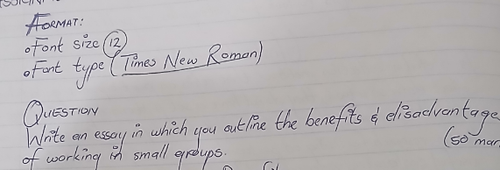 FORMAT:
• Font size 12
• Font type (Times New Roman)
QUESTION
Write an essay in which you outline the benefits & disadvantage
of working in small groups. (50